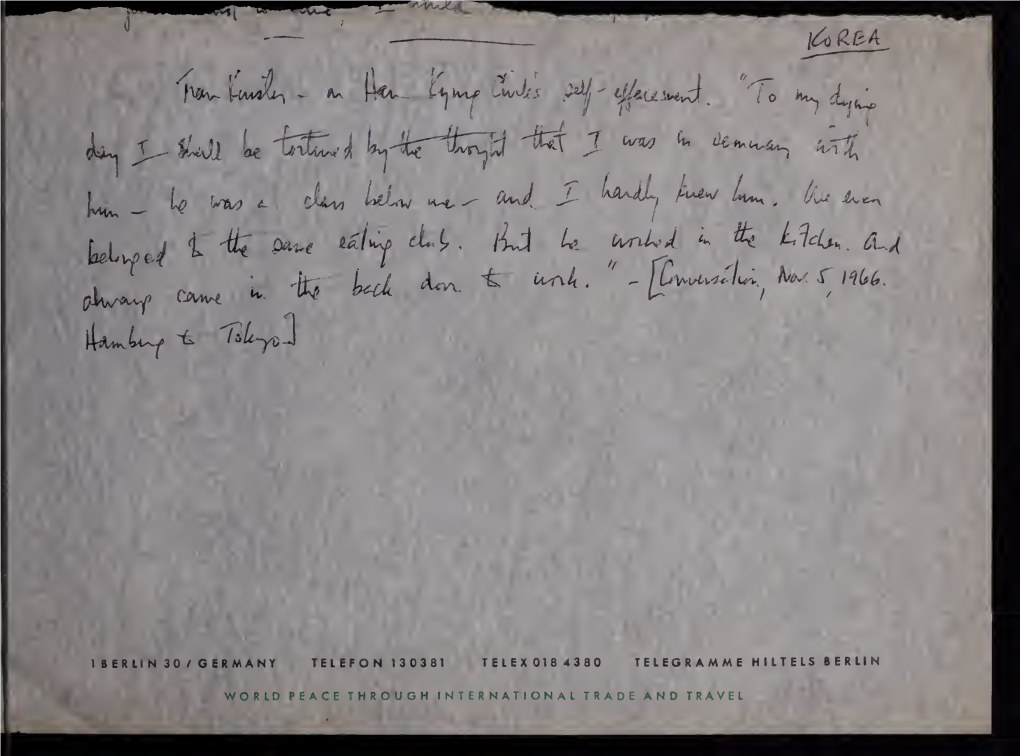 KOREA
Fran Kinsler - on Han Kyung Chik's self-effacement. "To my dying
day I shall be tortured by the thought that I was in seminary with
him - he was a class below me - and I hardly knew him. We even
belonged to the same eating club. But he worked in the kitchen. And
always came in the back door to work." - [Conversation, Nov. 5, 1966.
Hamburg to Tokyo]
1 BERLIN 30 / GERMANY TELEFON 130381 TELEX 018 4380 TELEGRAMME HILTELS BERLIN
WORLD PEACE THROUGH INTERNATIONAL TRADE AND TRAVEL